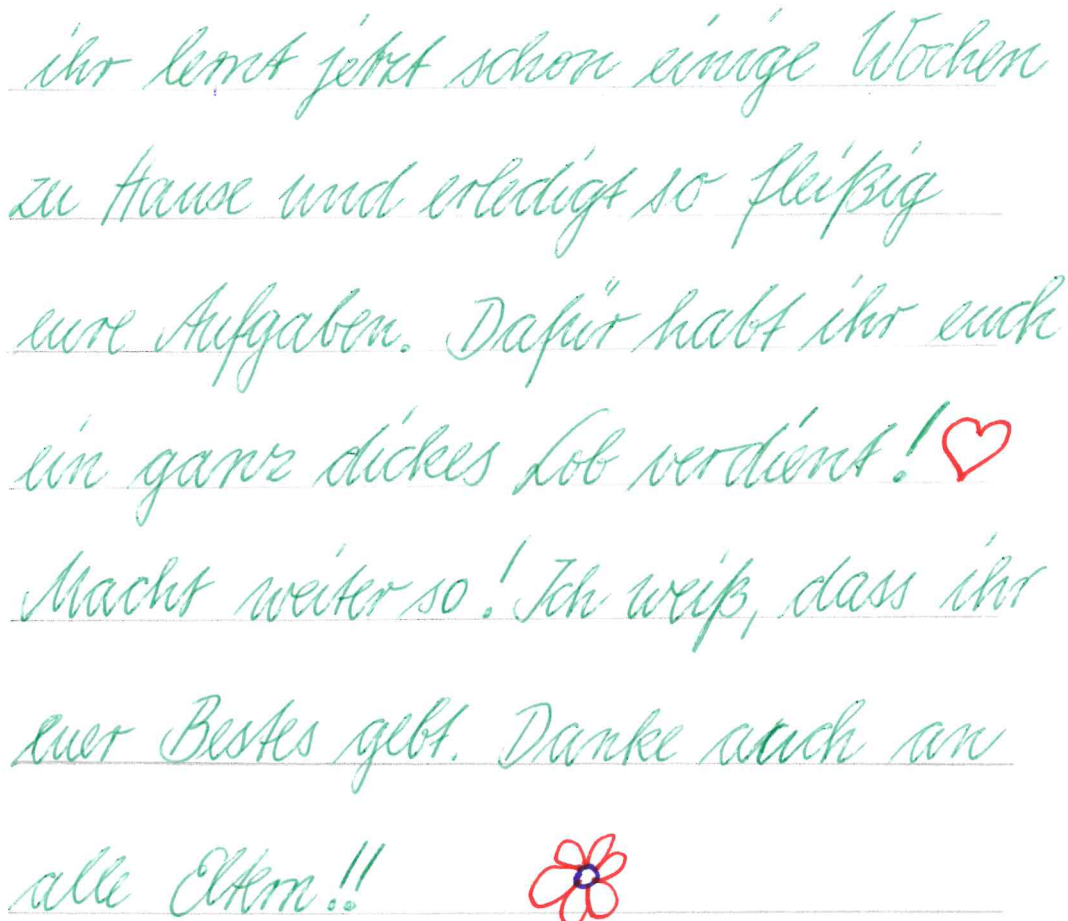 ihr lernt jetzt schon einige Wochen
zu Hause und erledigt so fleißig
eure Aufgaben. Dafür habt ihr euch
ein ganz dickes Lob verdient!
Macht weiter so! Ich weiß, dass ihr
euer Bestes gebt. Danke auch an
alle Eltern!!